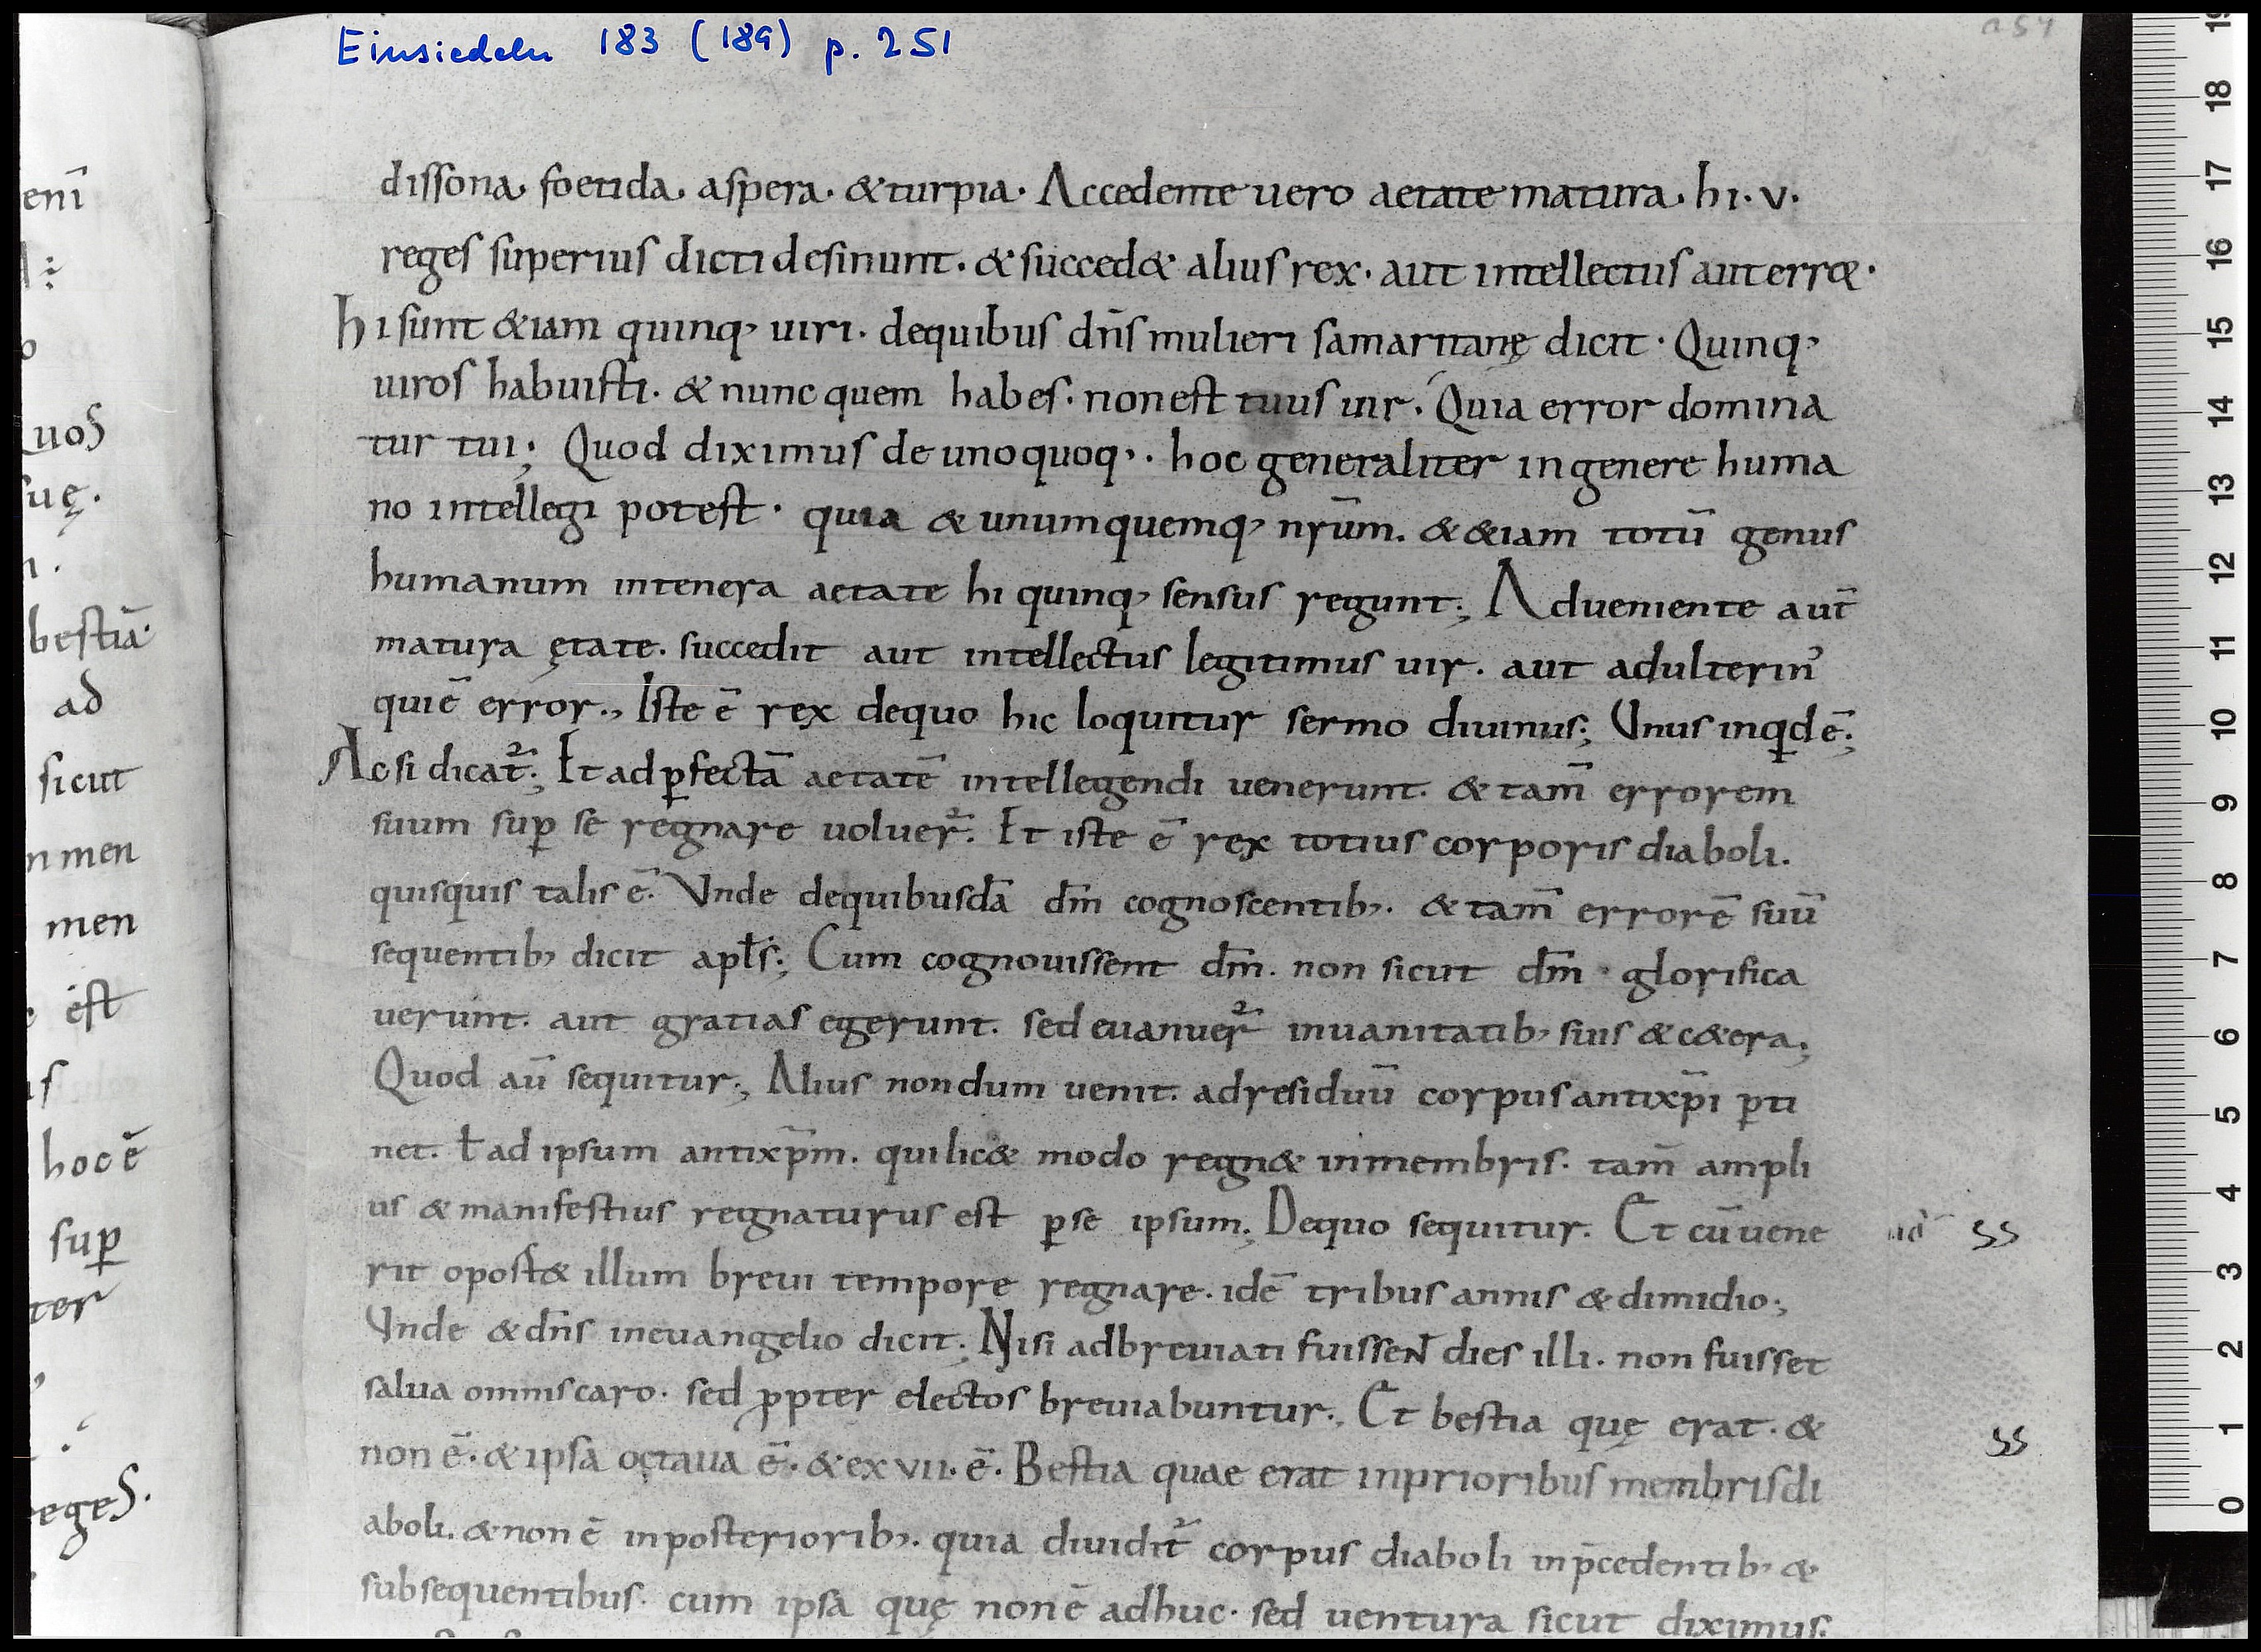 Einsiedeln 183 (189) p. 251
dissona. foetida. aspera. &turpia. Accedente uero aetate matura. hi. v.
reges superius dicti desinunt. & succed& alius rex. aut intellectus aut error.
hi sunt &iam quinq; uiri. dequibus dn̄s mulieri samaritanę dicit. Quinq;
uiros habuisti. & nunc quem habes. nonest tuus uir. Quia error domina
tur tui; Quod diximus de unoquoq;. hoc generaliter ingenere huma
no intellegi potest. quia & unumquemq; nr̄um. & &iam totū genus
humanum intenera aetate hi quinq; sensus regunt; Adueniente aut̄
matura ętate. succedit aut intellectus legitimus uir. aut adulterin᾿
quiē error., Iste ē rex dequo hic loquitur sermo diuinus; Vnus inqd ē;
Acsi dicat̄; Et adꝑfectā aetatē intellegendi uenerunt. & tam̄ errorem
suum suꝑ se regnare uoluer̄. Et iste ē rex totius corporis diaboli.
quisquis talis ē. Vnde dequibusdā dm̄ cognoscentib;. & tam̄ errorē suū
sequentib; dicit apłs; Cum cognouissent dm̄. non sicut dm̄. glorifica
uerunt. aut gratias egerunt. sed euanuer̄ inuanitatib; suis & c&era;
Quod aū sequitur; Alius nondum uenit. adresiduū corpus antixp̄i ꝑti
net. ł ad ipsum antixp̄m. qui lic& modo regn& inmembris. tam̄ ampli
us & manifestius regnaturus est ꝑse ipsum; Dequo sequitur. Et cū uene
rit oport& illum breui tempore regnare. idē tribus annis & dimidio;
Vnde & dn̄s ineuangelio dicit; Nisi adbreuiati fuissent dies illi. non fuisset
salua omnis caro. sed ꝓpter electos breuiabuntur; Et bestia quę erat. &
non ē. & ipsa octaua ē. & ex vii. ē. Bestia quae erat inprioribus membris di
aboli. & non ē inposteriorib;. quia diuidit̄ corpus diaboli inp̄cedentib; &
subsequentibus. cum ipsa quę non ē adhuc. sed uentura sicut diximus;
ss
ss
enī
uos
suę.
bestiā
ad
sicut
n men
men
est
hoc ē
suꝑ
ter
reges.
0
1
2
3
4
5
6
7
8
9
10
11
12
13
14
15
16
17
18